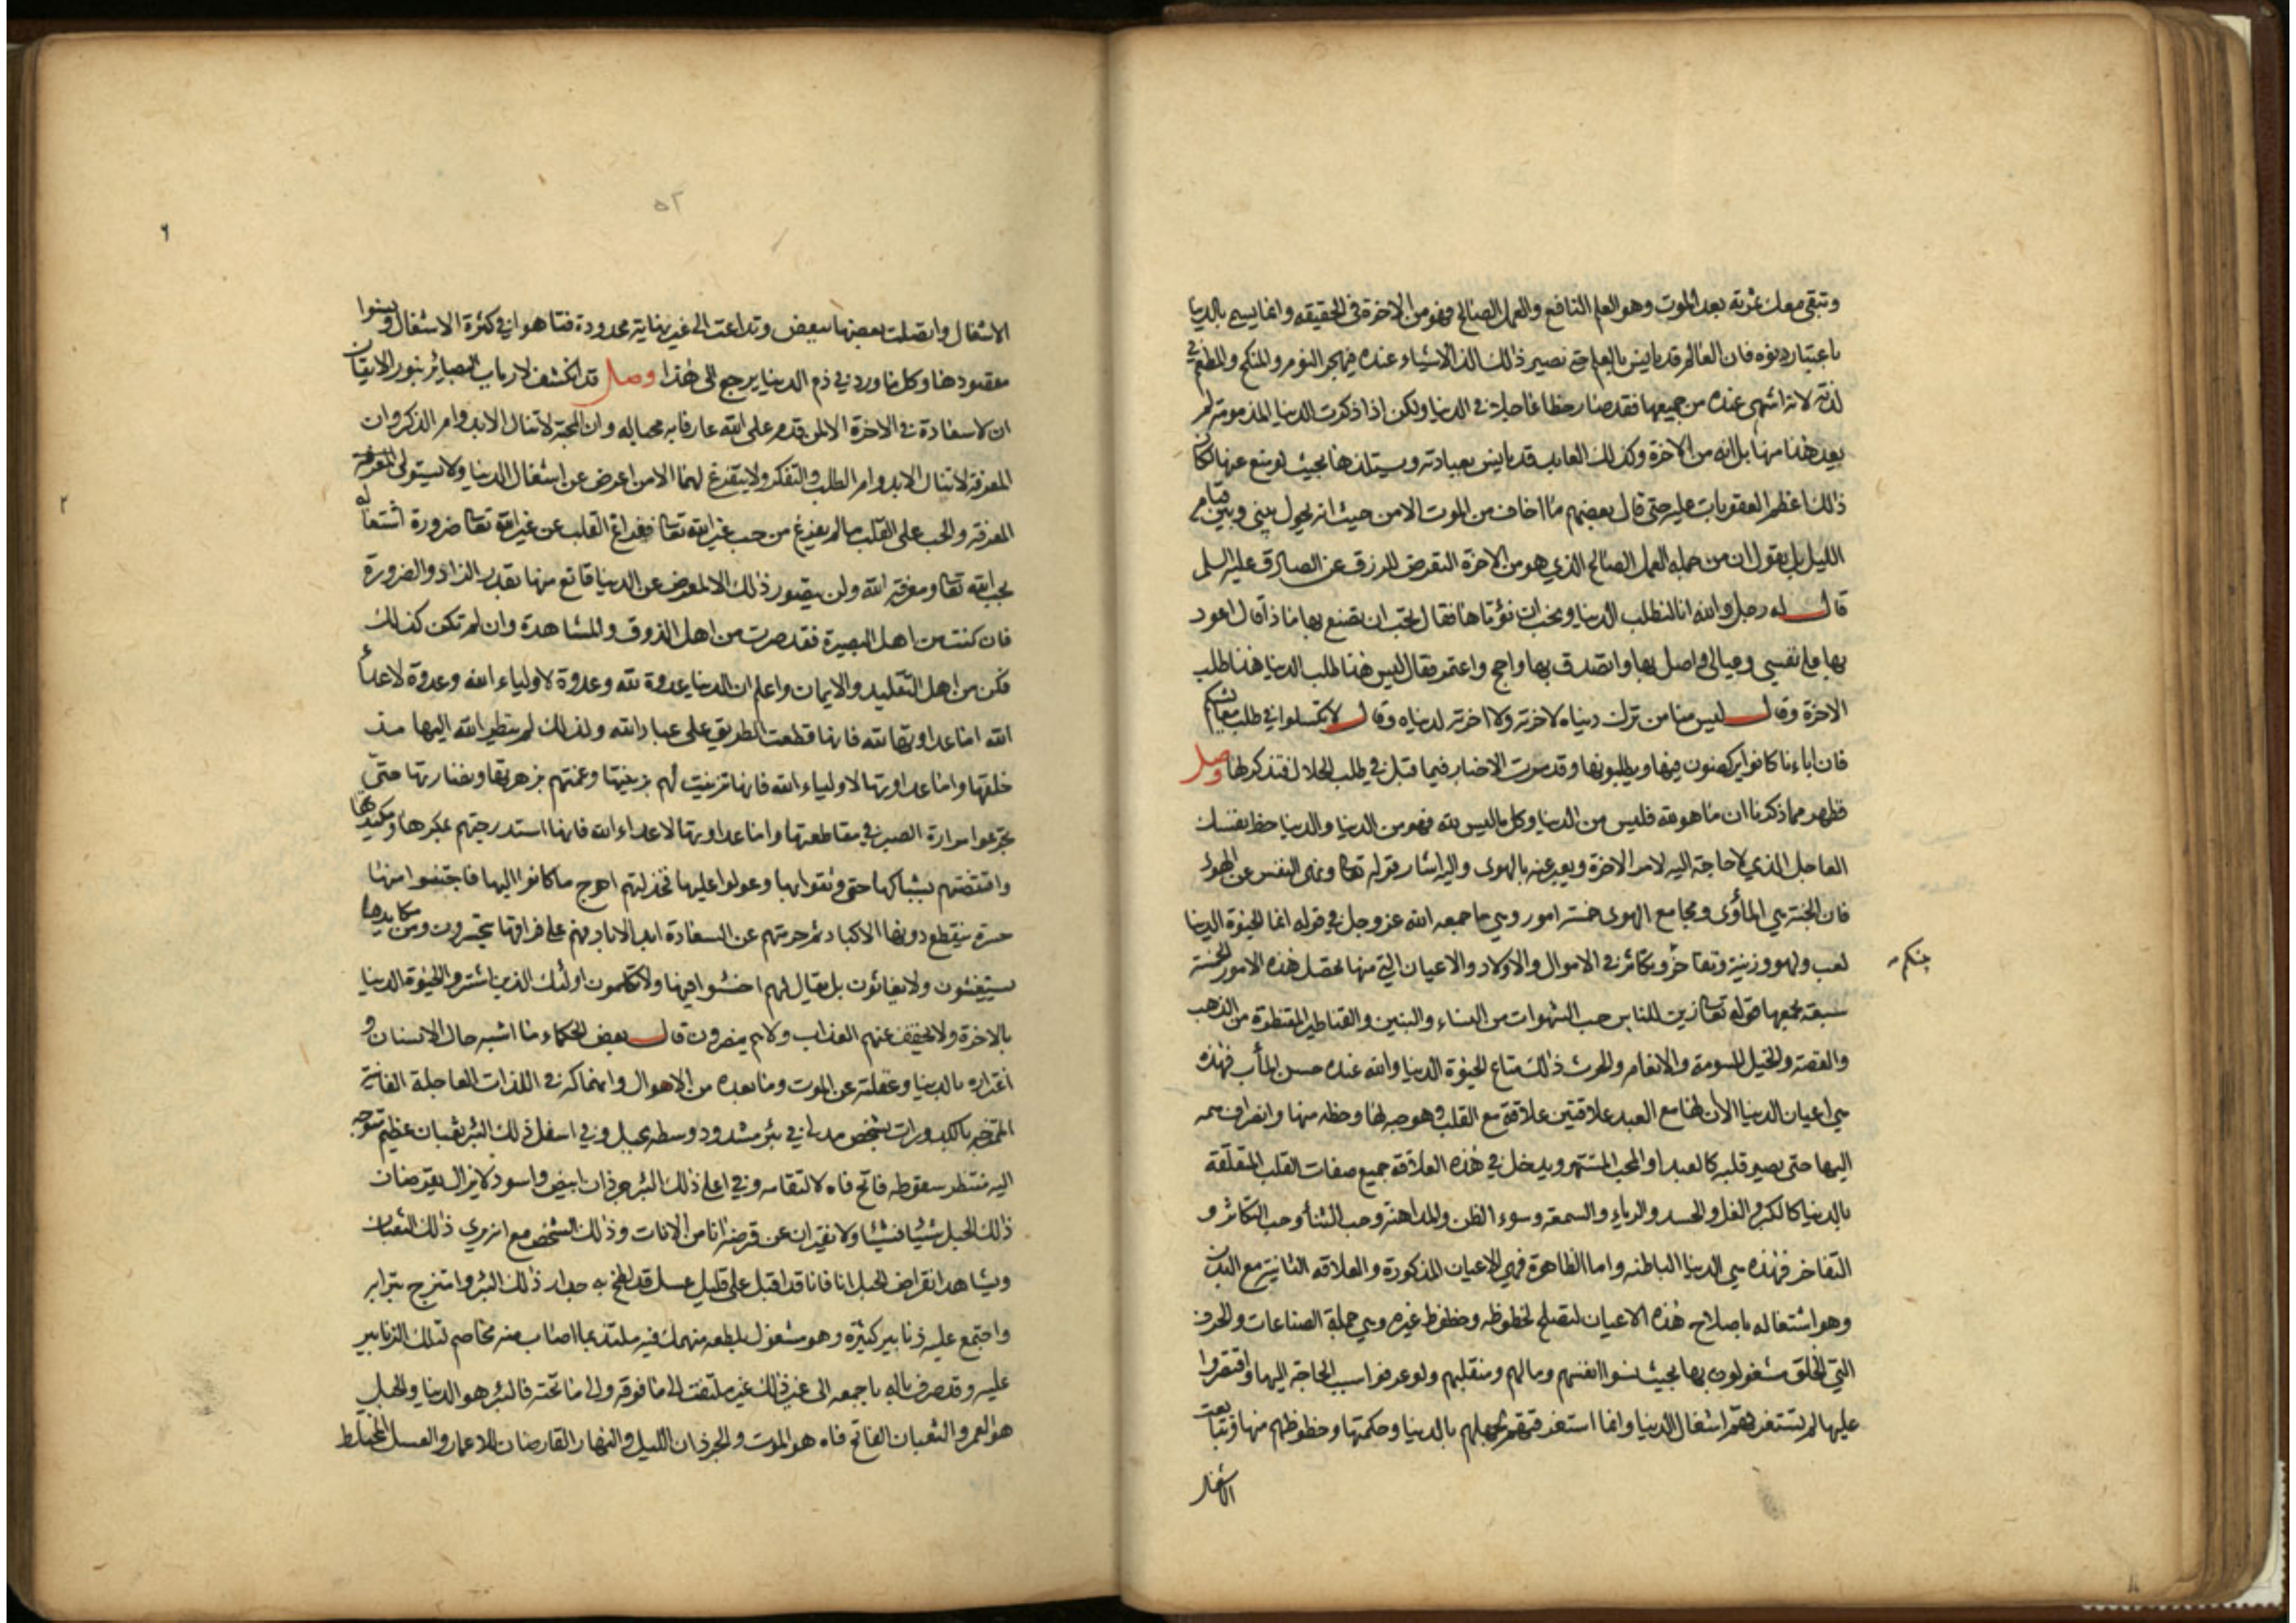 وتبقى معك ثمرته بعد الموت وهو العلم النافع والعمل الصالح فهو من الاخرة في الحقيقه وانما يسمى بالدنيا
باعتبار دنوه فان العالم قد يانس بالعلم حتى تصير ذلك الذ الاشياء عنده فيهجر النوم والمنكح والمطعم في
لذته لانه اشهى عنده من جميعها فقد صار حظا عاجلا في الدنيا ولكن اذا ذكرت الدنيا المذمومة لم
يعد هذا منها بل انه من الاخرة وكذلك العابد قد يانس بعبادته ويستلذها بحيث لو منع عنها لكان
ذلك اعظم العقوبات عليه حتى قال بعضهم ما اخاف من الموت الا من حيث انه يحول بيني وبين قيام
الليل بل يقول ان من جمله العمل الصالح الذي هو من الاخرة التعرض للرزق عن الصادق عليه السلم
قال له رجل والله انا لنطلب الدنيا ونحب ان نؤتاها فقال تحب ان تصنع بها ماذا قال اعود
بها على نفسي وعيالي واصل بها واتصدق بها واحج واعتمر فقال ليس هذا طلب الدنيا هذا طلب
الاخرة وقال ليس منا من ترك دنياه لاخرته ولا اخرته لدنياه وقال لا تكسلوا في طلب معايشكم
فان اباءنا كانوا يركضون فيها ويطلبونها وقد مرت الاخبار فيما قبل في طلب الحلال فتذكرها وصل
فظهر مما ذكرنا ان ما هو لله فليس من الدنيا وكل ما ليس لله فهو من الدنيا والدنيا حظ نفسك
العاجل الذي لا حاجة اليه لامر الاخرة ويعبر عنه بالهوى واليه اشار قوله تعالى ونهى النفس عن الهوى
فان الجنة هي المأوى ومجامع الهوى خمسة امور وهي ما جمعه الله عز وجل في قوله انما الحيوة الدنيا
لعب ولهو وزينة وتفاخر وتكاثر في الاموال والاولاد والاعيان التي منها تحصل هذه الامور الخمسة
بينكم
سبعة يجمعها قوله تعالى زين للناس حب الشهوات من النساء والبنين والقناطير المقنطرة من الذهب
والفضة والخيل المسومة والانعام والحرث ذلك متاع الحيوة الدنيا والله عنده حسن المأب فهذه
هي اعيان الدنيا الا ان لها مع العبد علاقتين علاقة مع القلب وهو حبه لها وحظه منها وانصراف همه
اليها حتى يصير قلبه كالعبد او المحب المستهتر ويدخل في هذه العلاقة جميع صفات القلب المتعلقة
بالدنيا كالكبر والغل والحسد والرياء والسمعة وسوء الظن والمداهنة وحب الثناء وحب التكاثر و
التفاخر فهذه هي الدنيا الباطنه واما الظاهرة فهي الاعيان المذكورة والعلاقه الثانية مع البدن
وهو اشتغاله باصلاح هذه الاعيان لتصلح لحظوظه وحظوظ غيره وهي جملة الصناعات والحرف
التي الخلق مشغولون بها بحيث نسوا انفسهم ومالهم ومنقلبهم ولو عرفوا سبب الحاجة اليها واقتصروا
عليها لم تستغرقهم اشغال الدنيا وانما استغرقتهم لجهلهم بالدنيا وحكمتها وحظوظهم منها فتتابعت
الاشغال
٥٢
٦
الاشغال واتصلت بعضها ببعض وتداعت الى غير نهاية محدودة فتاهوا في كثرة الاشغال ونسوا
مقصودها وكل ما ورد في ذم الدنيا يرجع الى هذا وصل قد انكشف لارباب البصائر بنور الايقان
ان لا سعادة في الاخرة الا لمن قدم على الله عارفا به محبا له وان المحبة لا تنال الا بدوام الذكر وان
المعرفة لا تنال الا بدوام الطلب والتفكر ولا يتفرغ لهما الا من اعرض عن اشغال الدنيا ولا يستولى المعرفة
المعرفة والحب على القلب ما لم يفرغ من حب غير الله تعالى ففراغ القلب عن غير الله تعالى ضرورة اشتغاله
٢
بحب الله تعالى ومعرفة الله ولن يتصور ذلك الا لمعرض عن الدنيا قانع منها بقدر الزاد والضرورة
فان كنت من اهل البصيرة فقد صرت من اهل الذوق والمشاهدة وان لم تكن كذلك
فكن من اهل التقليد والايمان واعلم ان الدنيا عدوة لله وعدوة لاولياء الله وعدوة لاعداء
الله اما عداوتها لله فانها قطعت الطريق على عباد الله ولذلك لم ينظر الله اليها منذ
خلقها واما عداوتها لاولياء الله فانها تزينت لهم بزينتها وعمتهم بزهرتها ونضارتها حتى
تجرعوا مرارة الصبر في مقاطعتها واما عداوتها لاعداء الله فانها استدرجتهم بمكرها ومكيدها
واقتنصتهم بشباكها حتى وثقوا بها وعولوا عليها فخذلتهم احوج ما كانوا اليها فاجتنوا منها
حسرة ينقطع دونها الاكباد ثم حرمتهم عن السعادة ابد الاباد فهم على فراقها يتحسرون ومن مكايدها
يستغيثون ولا يغاثون بل يقال لهم اخسئوا فيها ولا تكلمون اولئك الذين اشتروا الحيوة الدنيا
بالاخرة ولا يخفف عنهم العذاب ولا هم ينصرون قال بعض الحكماء ما اشبه حال الانسان و
اغتراره بالدنيا وغفلته عن الموت وما بعده من الاهوال وانهماكه في اللذات العاجلة الفانية
الممتزجه بالكدورات بشخص مدلى في بئر مشدود وسطه بحبل وفي اسفل ذلك البئر ثعبان عظيم متوجه
اليه منتظر سقوطه فاتح فاه لالتقامه وفي اعلى ذلك البئر جرذان ابيض واسود لا يزال يقرضان
ذلك الحبل شيئا فشيئا ولا يفتران عن قرضه انا من الانات وذلك الشخص مع انه يرى ذلك الثعبان
ويشاهد انقراض الحبل انا فانا قد اقبل على قليل عسل قد لطخ به جدار ذلك البئر وامتزج بترابه
واجتمع عليه زنابير كثيرة وهو مشغول بلطعه منهمك فيه ملتذ بما اصاب منه مخاصم لتلك الزنابير
عليه وقد صرف باله باجمعه الى غير ذلك غير ملتفت الى ما فوقه والى ما تحته فالبئر هو الدنيا والحبل
هو العمر والثعبان الفاتح فاه هو الموت والجرذان الليل والنهار القارضان للاعمار والعسل المختلط